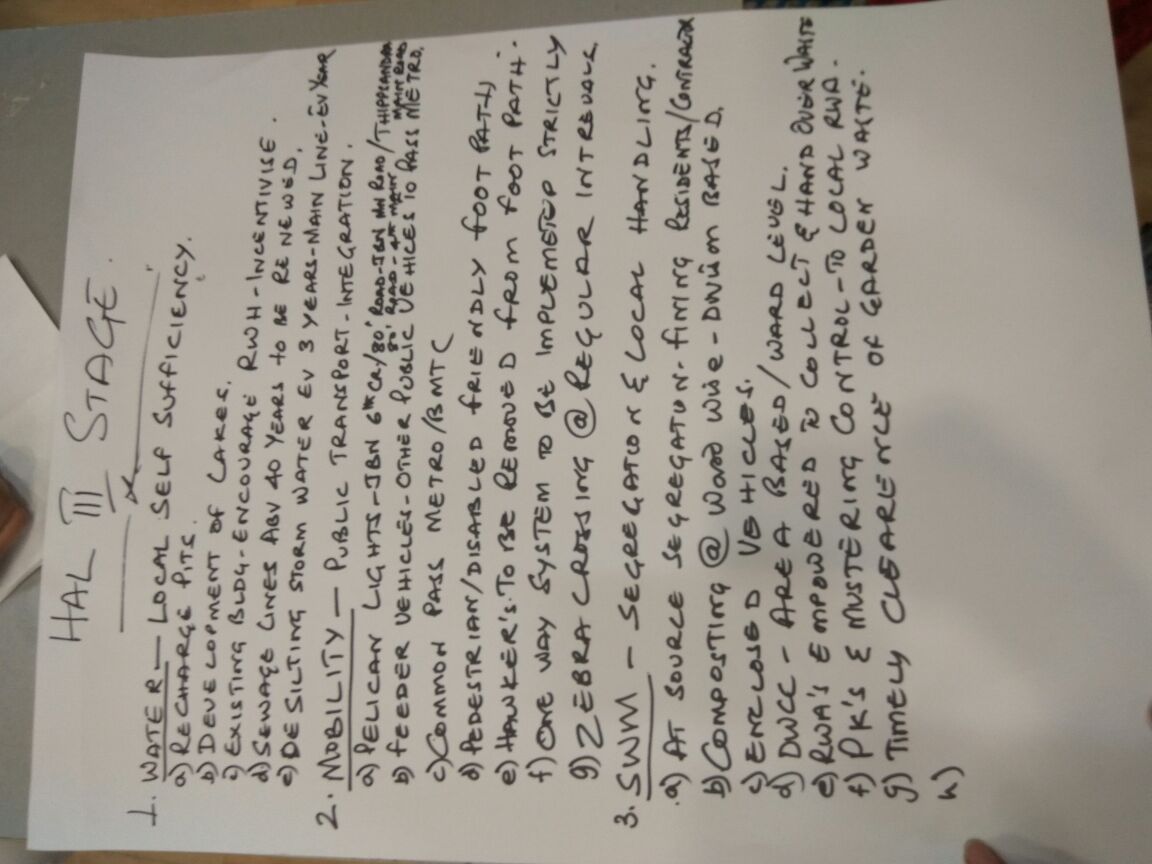 HAL III STAGE.
1. WATER — LOCAL SELF SUFFICIENCY.
a) RECHARGE PITS.
b) DEVELOPMENT OF LAKES.
c) EXISTING BLDG-ENCOURAGE RWH-INCENTIVISE.
d) SEWAGE LINES ABV 40 YEARS TO BE RENEWED.
e) DESILTING STORM WATER EV 3 YEARS-MAIN LINE-EV YEAR
2. MOBILITY — PUBLIC TRANSPORT-INTEGRATION.
a) PELICAN LIGHTS-JBN 6th CR/80' ROAD-JBN MN ROAD/THIPPSANDRA MAIN ROAD
80' ROAD - MAIN ROAD
b) FEEDER VEHICLES-OTHER PUBLIC VEHICES TO PASS METRO.
c) COMMON PASS METRO/BMTC
d) PEDESTRIAN/DISABLED FRIENDLY FOOT PATH
e) HAWKER'S. TO BE REMOVED FROM FOOT PATH.
f) ONE WAY SYSTEM TO BE IMPLEMETED STRICTLY
g) ZEBRA CROSSING @ REGULAR INTREVALS
3. SWM — SEGREGATION & LOCAL HANDLING.
a) AT SOURCE SEGREGATION-FINING RESIDENTS/CONTRACTOR
b) COMPOSTING @ WARD WISE-DIVISION BASED.
c) ENCLOSED VEHICLES.
d) DWCC - AREA BASED/WARD LEVEL.
e) RWA'S EMPOWERED TO COLLECT & HAND OVER WASTE
f) PK'S & MUSTERING CONTROL-TO LOCAL RWA.
g) TIMELY CLEARENCE OF GARDEN WASTE.
h)